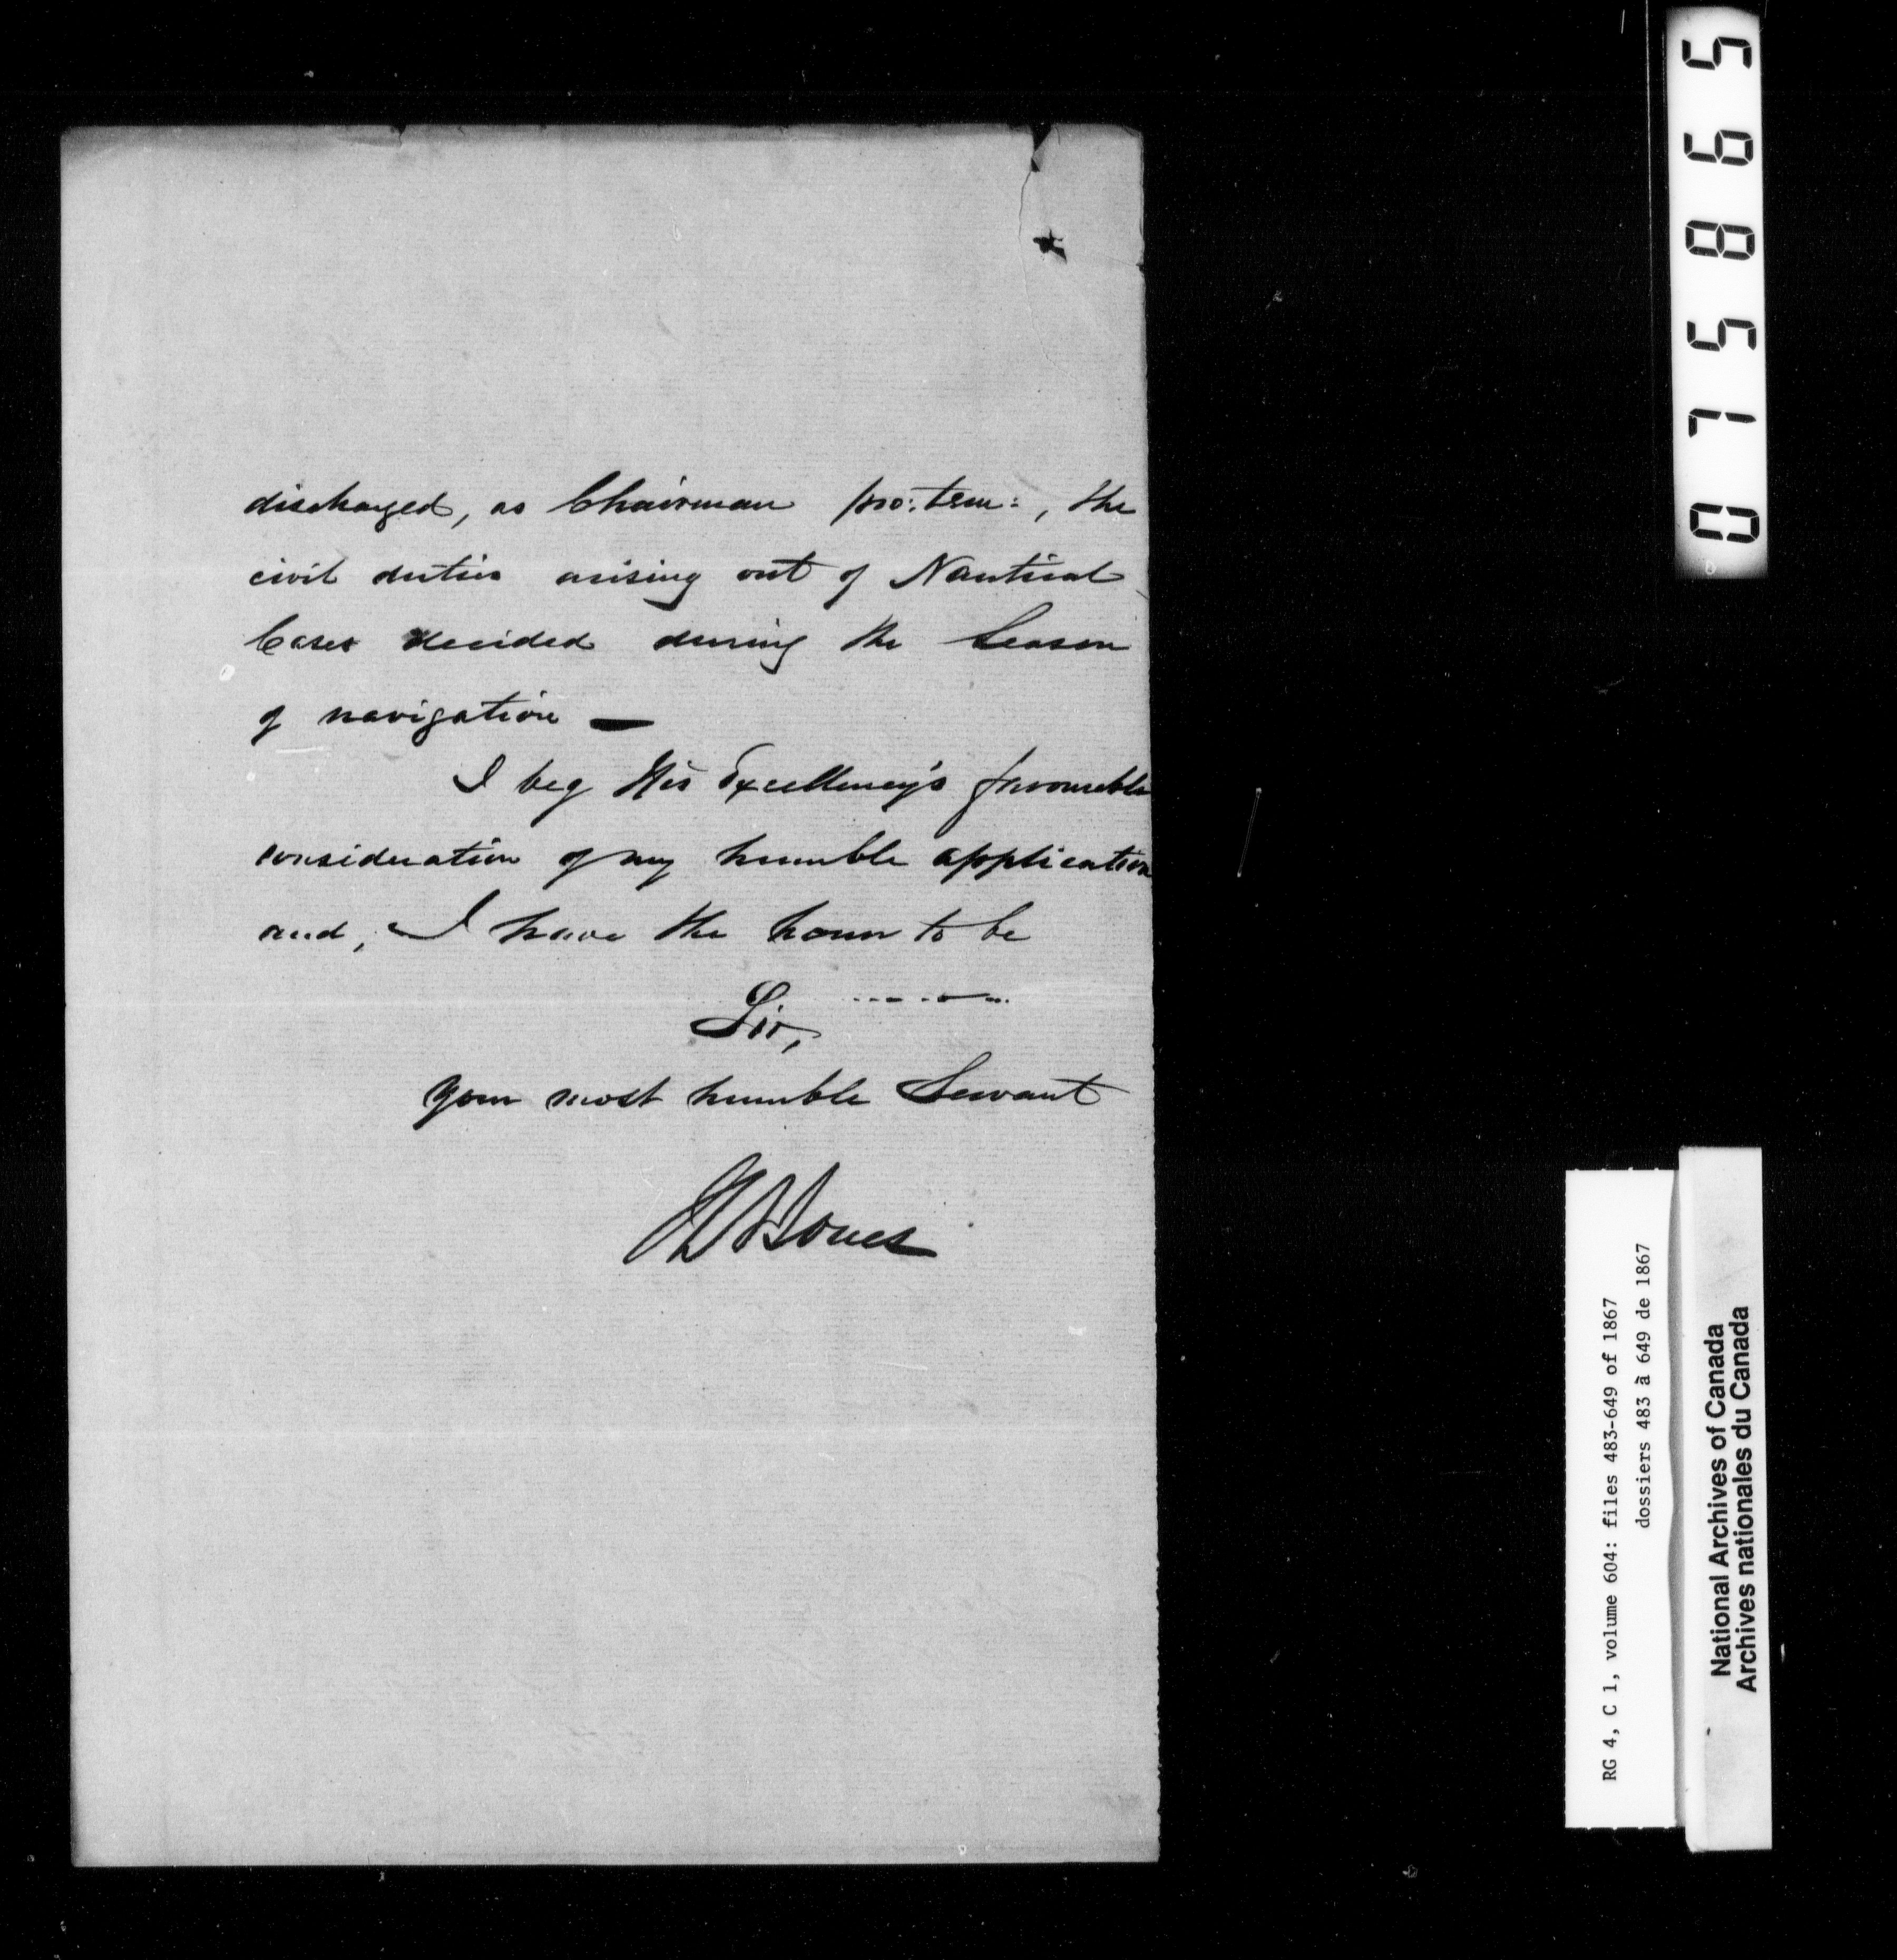 discharged, as Chairman pro: tem:, the
civil duties arising out of Nautical
Cases decided during the Season
of navigation —
I beg His Excellency's favourable
consideration of my humble application
and, I have the honor to be
Sir,
Your most humble Servant
075865
RG 4, C 1, volume 604: files 483-649 of 1867
dossiers 483 à 649 de 1867
National Archives of Canada
Archives nationales du Canada